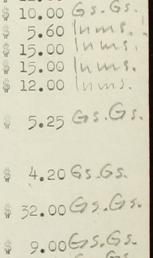 $ 10.00 Gs. Gs.
$ 5.60 Inms.
$ 15.00 Inms.
$ 15.00 Inms.
$ 12.00 Inms.
$ 5.25 Gs. Gs.
$ 4.20 Gs. Gs.
$ 32.00 Gs. Gs.
$ 9.00 Gs. Gs.